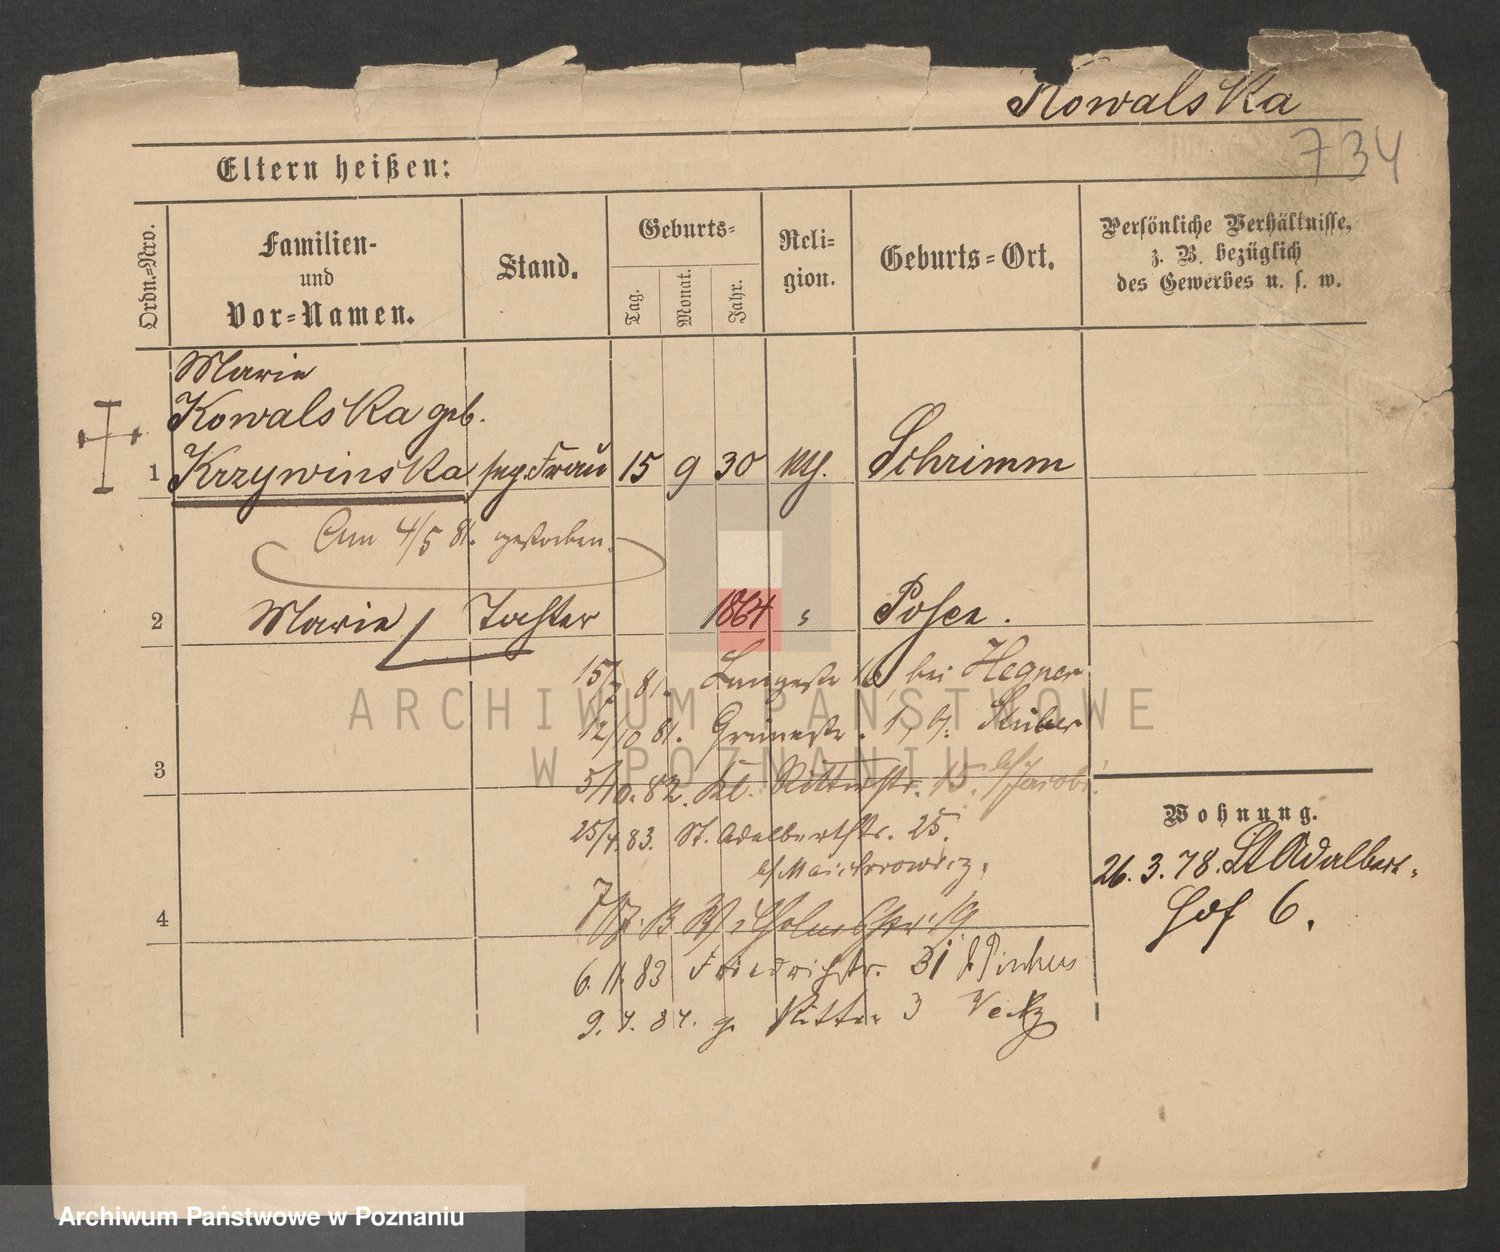 Kowalska
734
Eltern heißen:
Ordn.-Nro.
Familien-
und
Vor-Namen.
Stand.
Geburts-
Tag.
Monat.
Jahr.
Reli-
gion.
Geburts-Ort.
Persönliche Verhältnisse,
z. B. bezüglich
des Gewerbes u. s. w.
Marie
Kowalska geb.
1 Krzywinska Frau 15 9 30 Schrimm
Am 4/5 81. gestorben.
2 Marie Tochter 1864 " Posen.
15/7 81. Langestr 16, bei Hegner
12/10 81. Grünestr. 1, b. Stüber
3
5/10. 82. Kl. Ritterstr. 15. bei Jacobi.
25/4. 83. St. Adalbertstr. 25.
4
Wilhelmstr. 19
6. 11. 83 Friedrichstr. 31 b. Pincus
9. 4. 84. Ritter 3
Wohnung.
26. 3. 78. St Adalbert-
hof 6.
ARCHIWUM PAŃSTWOWE
W POZNANIU
Archiwum Państwowe w Poznaniu